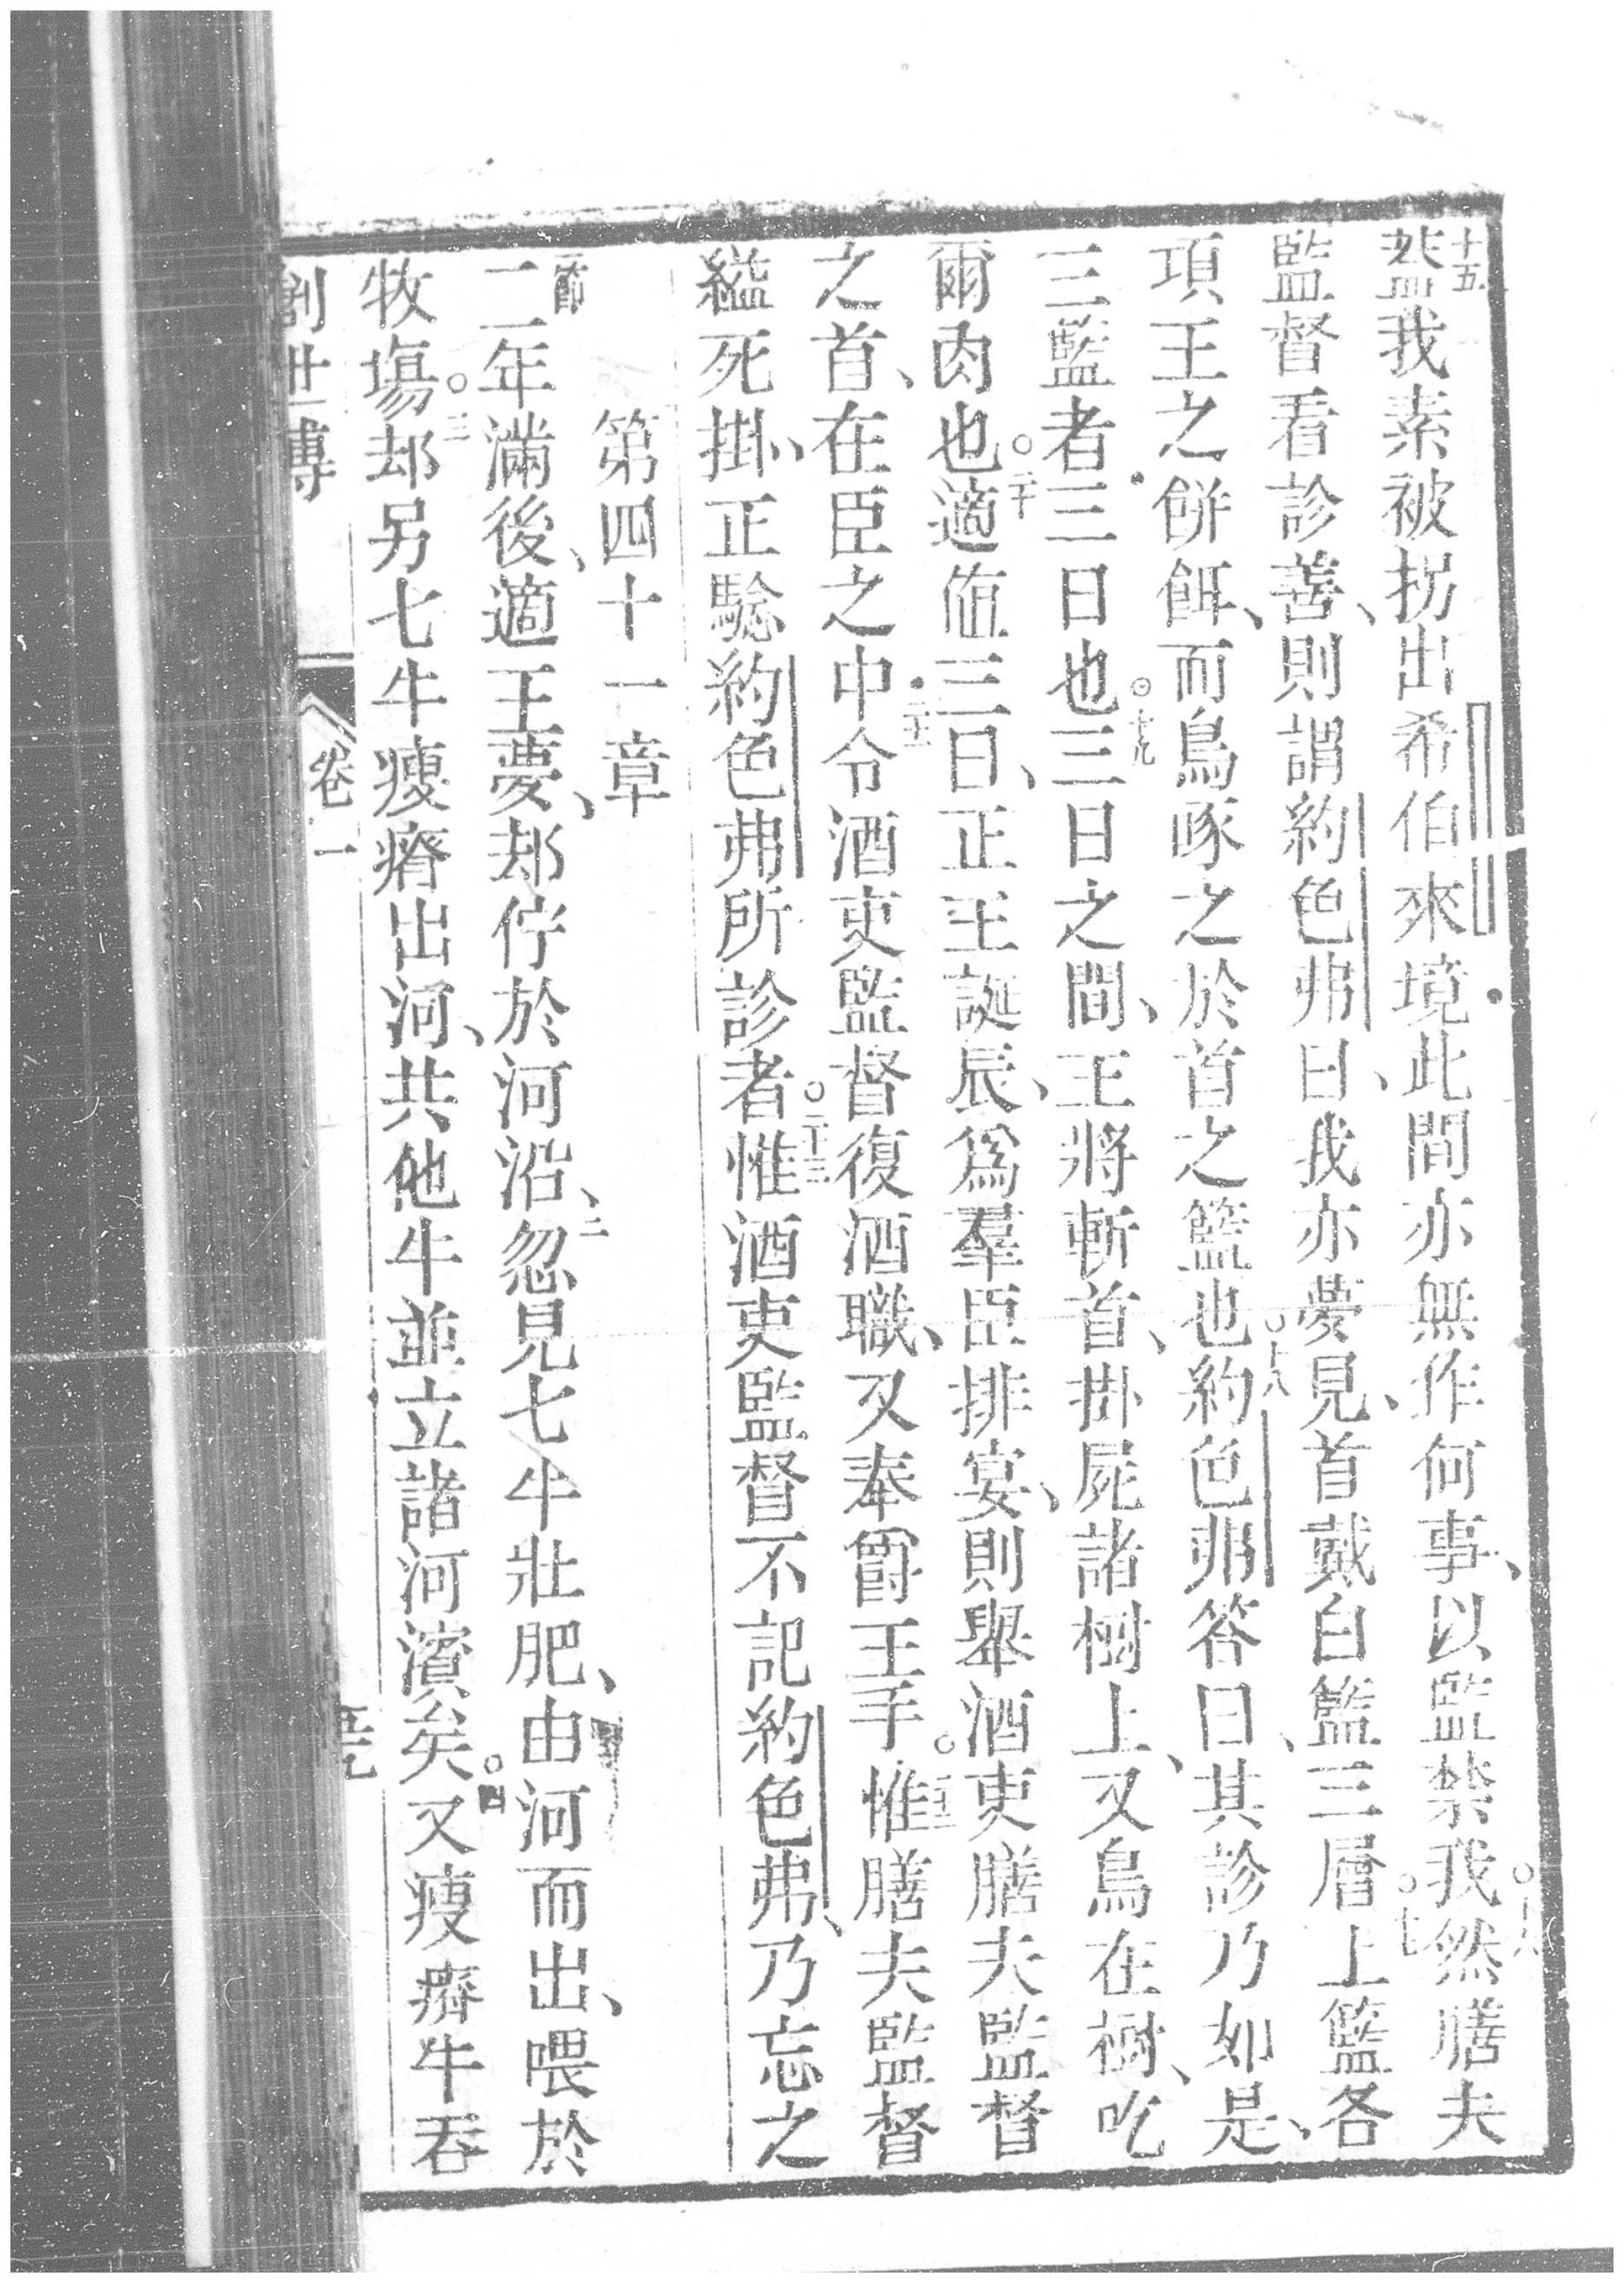 十五蓋我素被拐出希伯來境此間亦無作何事、以監禁我○十六然膳夫
監督看診善、則謂約色弗曰、我亦夢見、首戴白籃三層○十七上籃各
項王之餅餌、而鳥啄之於首之籃也○十八約色弗答曰、其診乃如是、
三籃者三日也○十九三日之間、王將斬首、掛屍諸樹上、又鳥在樹、吃
爾肉也○二十適值三日、正王誕辰、爲羣臣排宴、則舉酒吏膳夫監督
之首、在臣之中二十一令酒吏監督復酒職、又奉爵王手○二十二惟膳夫監督
縊死掛、正驗約色弗所診者○二十三惟酒吏監督不記約色弗、乃忘之
第四十一章
一節二年滿後、適王夢、却佇於河沿、二忽見七牛壯肥、由河而出、喂於
牧塲○三却另七牛瘦瘠出河、共他牛並立諸河濱矣○四又瘦瘠牛吞
創世傳
卷一